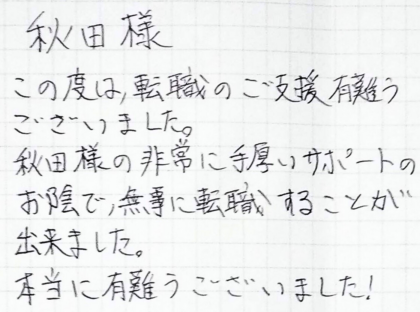 秋田様
この度は,転職のご支援有難う
ございました。
秋田様の非常に手厚いサポートの
お陰で,無事に転職することが
出来ました。
本当に有難うございました!